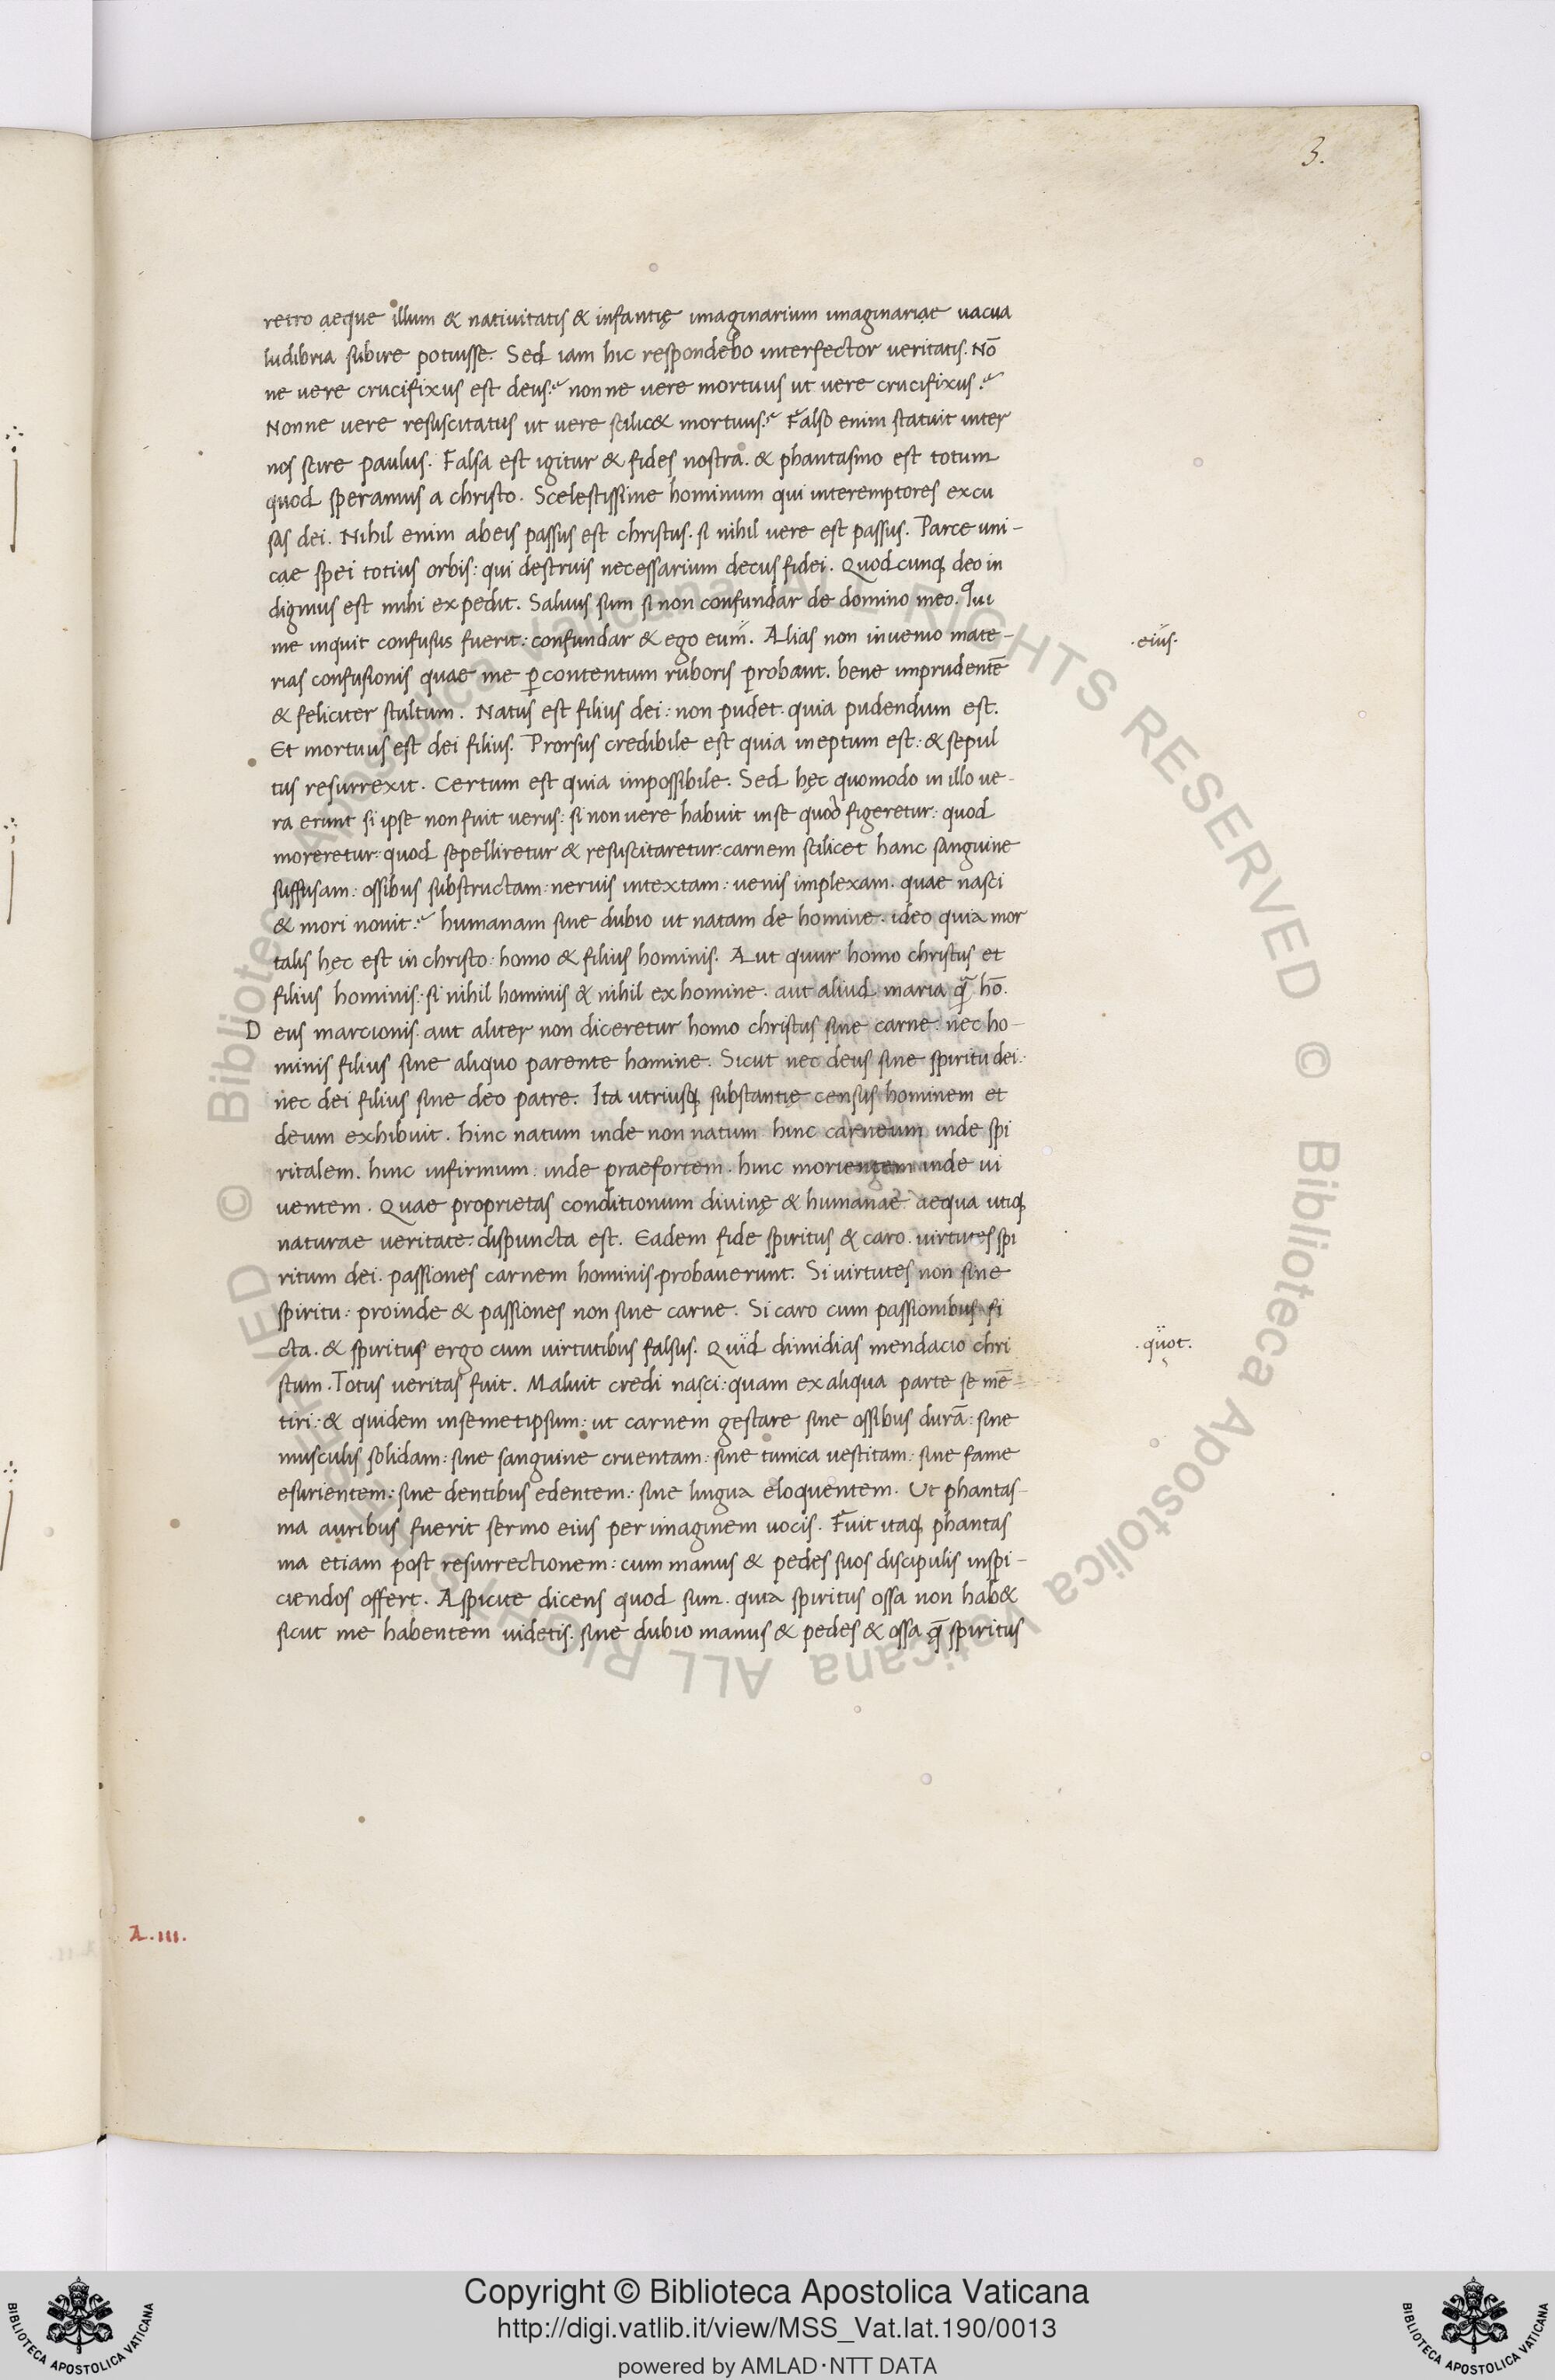 3.
retro aeque illum & nativitatis & infantię imaginarium imaginariae vacua
ludibria subire potuisse. Sed iam hic respondebo interfector veritatis. Nō
ne vere crucifixus est deus? non ne vere mortuus ut vere crucifixus?
Nonne vere resuscitatus ut vere scilic& mortuus? Falso enim statuit inter
nos scire paulus. Falsa est igitur & fides nostra. & phantasmo est totum
quod speramus a christo. Scelestissime hominum qui interemptores excu
sas dei. Nihil enim abeis passus est christus. si nihil vere est passus. Parce uni-
cae spei totius orbis: qui destruis necessarium decus fidei. Quodcunq; deo in
dignus est mihi expedit. Salvus sum si non confundar de domino meo. Qui
me inquit confusus fuerit: confundar & ego eum. Alias non invenio mate-
.eius.
rias confusionis quae me ꝑ contentum ruboris ꝓrobant. bene imprudentē
& feliciter stultum. Natus est filius dei: non pudet. quia pudendum est.
Et mortuus est dei filius. Prorsus credibile est quia ineptum est: & sepul
tus resurrexit. Certum est quia impossibile. Sed hęc quomodo in illo ve-
ra erunt si ipse non fuit verus: si non vere habuit inse quod figeretur: quod
moreretur: quod sepelliretur & resuscitaretur: carnem scilicet hanc sanguine
suffusam: ossibus substructam: nervis intextam: venis implexam. quae nasci
& mori novit? humanam sine dubio ut natam de homine. ideo quia mor
talis hęc est in christo: homo & filius hominis. Aut quur homo christus et
filius hominis: si nihil hominis & nihil ex homine. aut aliud maria q̄ hō.
D eus marcionis. aut aliter non diceretur homo christus sine carne: nec ho-
minis filius sine aliquo parente homine. Sicut nec deus sine spiritu dei:
nec dei filius sine deo patre. Ita utriusq; substantię census hominem et
deum exhibuit. hinc natum inde non natum hinc carneum inde spi
ritalem. hinc infirmum: inde praefortem. hinc morientem inde vi
ventem. Quae proprietas conditionum divinę & humanae aequa utiq;
naturae veritate dispuncta est. Eadem fide spiritus & caro. virtutes spi
ritum dei. passiones carnem hominis probaverunt. Si virtutes non sine
spiritu: proinde & passiones non sine carne. Si caro cum passionibus fi
cta. & spiritus ergo cum virtutibus falsus. Quid dimidias mendacio chri
.quot.
stum. Totus veritas fuit. Maluit credi nasci: quam ex aliqua parte se mē-
tiri: & quidem insemetipsum: ut carnem gestare sine ossibus durā: sine
musculis solidam: sine sanguine cruentam: sine tunica vestitam: sine fame
esurientem: sine dentibus edentem: sine lingua eloquentem. Ut phantas-
ma auribus fuerit sermo eius per imaginem vocis. Fuit itaq; phantas
ma etiam post resurrectionem: cum manus & pedes suos discipulis inspi-
ciendos offert. Aspicite dicens quod sum. quia spiritus ossa non hab&
sicut me habentem videtis. sine dubio manus & pedes & ossa q̄ spiritus
A.III.
Copyright © Biblioteca Apostolica Vaticana
http://digi.vatlib.it/view/MSS_Vat.lat.190/0013
powered by AMLAD·NTT DATA